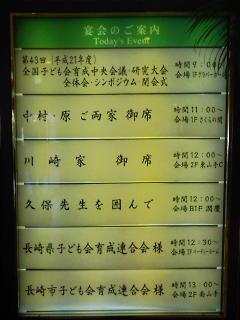 宴会のご案内
Today's Event
第43回(平成21年度)
全国子ども会育成中央会議・研究大会
全体会・シンポジウム・閉会式
時間 9:00~
会場 1F
中村・原ご両家 御席
時間 11:00~
会場 1F さくらの間
川崎家 御席
時間 12:00~
会場 2F 東山手C
久保先生を囲んで
時間 12:00~
会場 B1F
長崎県子ども会育成連合会 様
時間 12:30~
会場
長崎市子ども会育成連合会 様
時間 13:00~
会場 2F 南山手